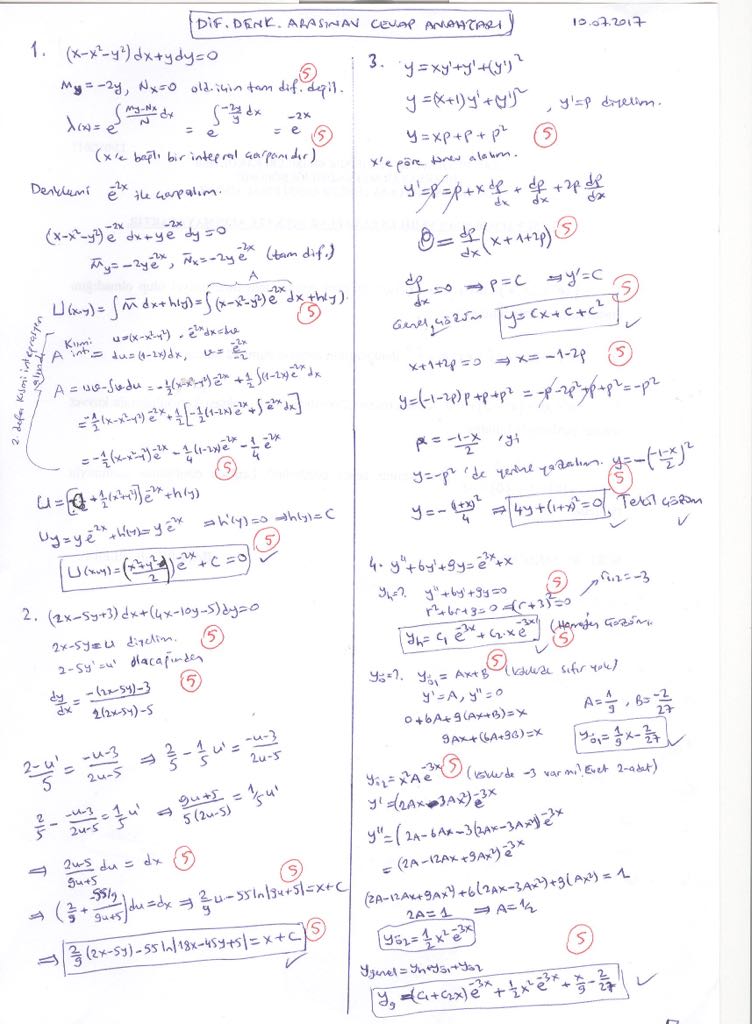 DİF. DENK. ARASINAV CEVAP ANAHTARI
10.07.2017
1. (x-x²-y²)dx+ydy=0
My=-2y, Nx=0 old. için tam dif. değil. 5
λ(x)=e^{∫(My-Nx)/N dx} = e^{∫-2y/y dx} = e^{-2x} 5
(x'e bağlı bir integral çarpanıdır)
Denklemi e^{-2x} ile çarpalım.
(x-x²-y²)e^{-2x}dx+ye^{-2x}dy=0
M̄y=-2ye^{-2x}, N̄x=-2ye^{-2x} (tam dif.)
A
U(x,y)=∫M̄dx+h(y)=∫(x-x²-y²)e^{-2x}dx+h(y). 5
2. defa kısmi integrasyon
A kısmi int. = u=(x-x²-y²) e^{-2x}dx=dv
du=(1-2x)dx, v=e^{-2x}/-2
A=uv-∫vdu=-1/2(x-x²-y²)e^{-2x}+1/2∫(1-2x)e^{-2x}dx
=-1/2(x-x²-y²)e^{-2x}+1/2[-1/2(1-2x)e^{-2x}+∫e^{-2x}dx]
=-1/2(x-x²-y²)e^{-2x}-1/4(1-2x)e^{-2x}-1/4e^{-2x} 5
+1/2(x²+y²)]e^{-2x}+h(y)
Uy=ye^{-2x}+h'(y)=ye^{-2x} ⇒h'(y)=0 ⇒h(y)=C
U(x,y)=((x²+y²)/2)e^{-2x}+C=0 ✓ 5
2. (2x-5y+3)dx+(4x-10y-5)dy=0
2x-5y=u diyelim. 5
2-5y'=u' olacağından
dy/dx=(-(2x-5y)-3)/(2(2x-5y)-5) 5
(2-u')/5=(-u-3)/(2u-5) ⇒ 2/5-1/5u'=(-u-3)/(2u-5)
2/5-(-u-3)/(2u-5)=1/5u' ⇒ (9u+5)/(5(2u-5))=1/5u'
⇒ (2u-5)/(9u+5)du=dx 5
⇒ (2/9+(-55/9)/(9u+5))du=dx ⇒ 2/9u-55ln|9u+5|=x+C 5
⇒ 2/9(2x-5y)-55ln|18x-45y+5|=x+C 5 ✓
3. y=xy'+y'+(y')²
y=(x+1)y'+(y')², y'=p diyelim.
y=xp+p+p² 5
x'e göre türev alalım.
y'=p=p+x dp/dx+dp/dx+2p dp/dx
0=dp/dx(x+1+2p) 5
dp/dx=0 ⇒p=C ⇒y'=C 5
Genel çözüm y=Cx+C+C² ✓
x+1+2p=0 ⇒x=-1-2p 5
y=(-1-2p)p+p+p²=-p-2p²+p+p²=-p²
p=(-1-x)/2 'yi
y=-p² 'de yerine yazalım. y=-((-1-x)/2)² 5
y=-(1+x)²/4 ⇒ 4y+(1+x)²=0, Tekil çözüm ✓ ✓
4. y''+6y'+9y=e^{-3x}+x
yh=? y''+6y'+9y=0 5 r1,2=-3
r²+6r+9=0=(r+3)²=0
yh=c1e^{-3x}+c2xe^{-3x} 5 (Homojen çözüm) ✓
yö=? yö1=Ax+B 5 (köklerde sıfır yok)
y'=A, y''=0
0+6A+9(Ax+B)=x
9Ax+(6A+9B)=x
A=1/9, B=-2/27
yö1=1/9x-2/27 ✓
yö2=x²Ae^{-3x} 5 (köklerde -3 var mı? Evet 2 adet)
y'=(2Ax-3Ax²)e^{-3x}
y''=(2A-6Ax-3(2Ax-3Ax²))e^{-3x}
=(2A-12Ax+9Ax²)e^{-3x}
(2A-12Ax+9Ax²)+6(2Ax-3Ax²)+9(Ax²)=1
2A=1 ⇒A=1/2
yö2=1/2x²e^{-3x}
5
ygenel=yh+yö1+yö2
yg=(c1+c2x)e^{-3x}+1/2x²e^{-3x}+x/9-2/27 ✓